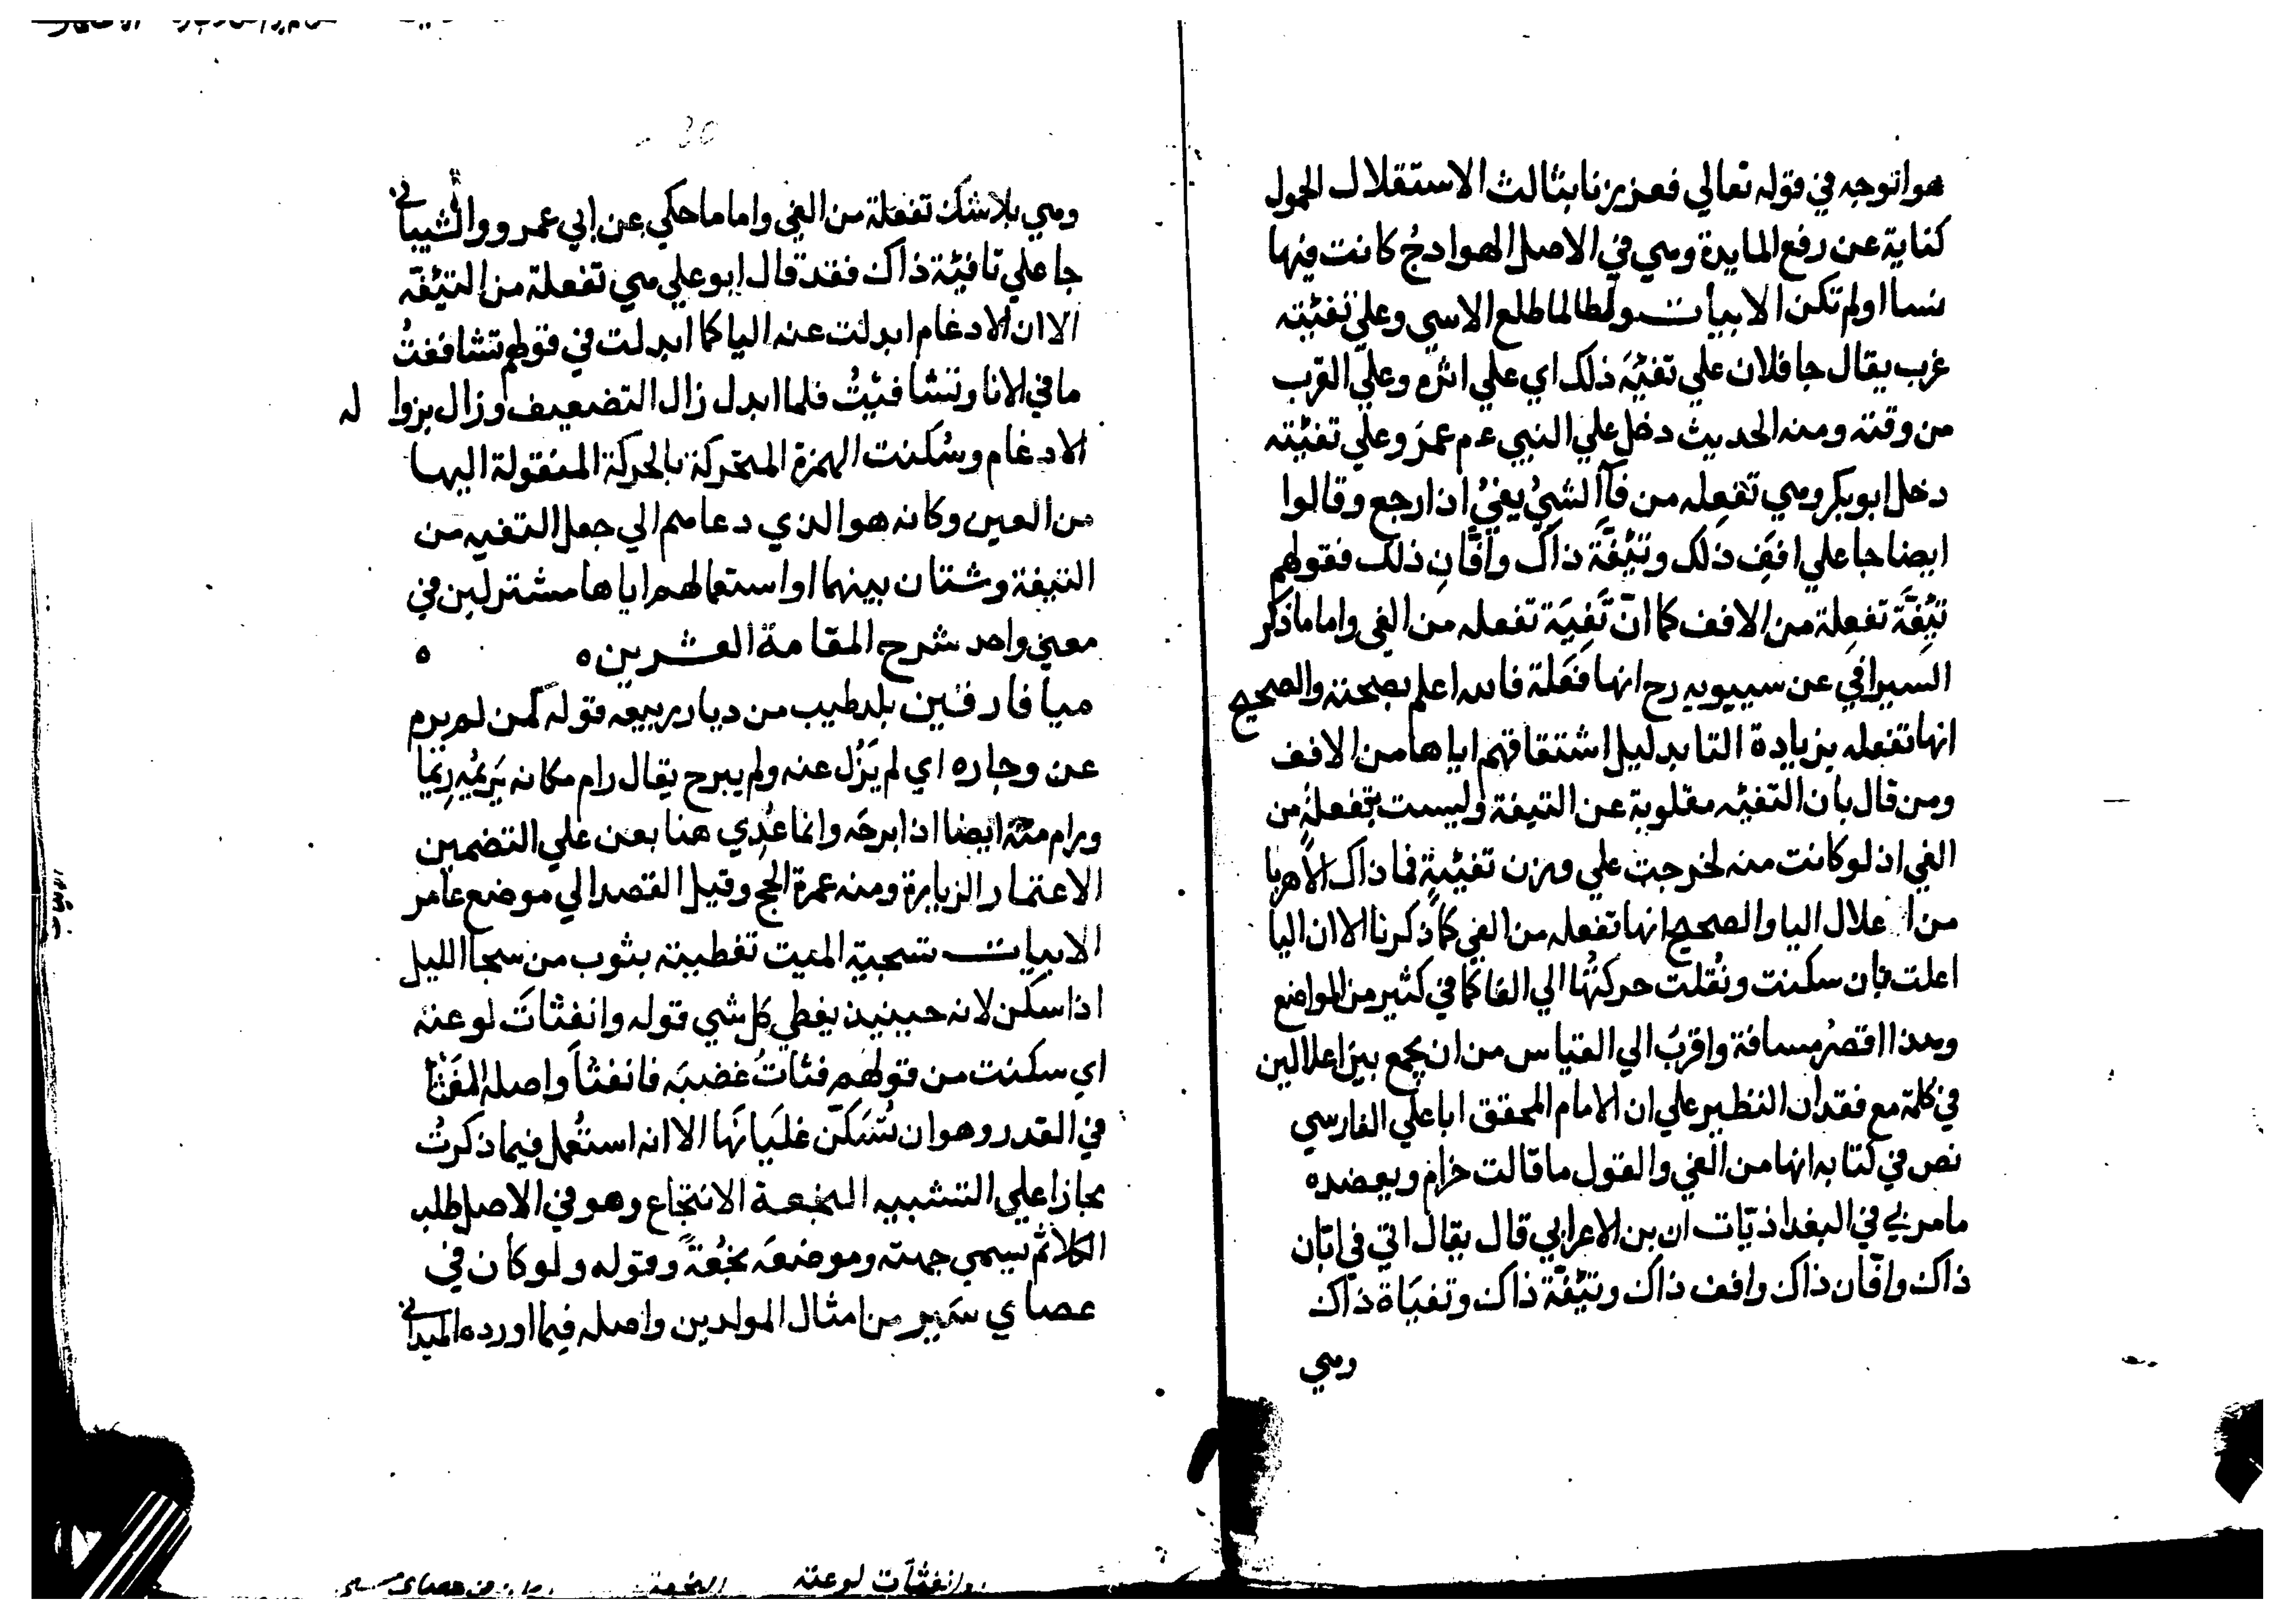 هو اتوجه في قوله تعالي فعززنا بثالث الاستقلال الحمول
كناية عن رفع المايدة وهي في الاصل الهوادج كانت فيها
نسا او لم تكن الابيات ولطالما طلع الاسي وعلي تفئته
غرب يقال جا فلان علي تفئة ذلك اي علي اثره وعلي القرب
من وقته ومنه الحديث دخل علي النبي ءم عمر وعلي تفئته
دخل ابو بكر وهي تفعله من فآ الشيُ يفيُ اذا رجع وقالوا
ايضا جا علي افف ذلك وتئفّة ذاك وافّان ذلك فقولهم
تئفّة تفعلة من الافف كما انّ تفية تفعله من الفي واما ما ذكر
السيرافي عن سيبويه رح انها فعلة فالله اعلم بصحته والصحيح
انها تفعله بزيادة التا بدليل اشتقاقهم اياها من الافف
ومن قال بان التفئه مقلوبة عن التيفة وليست بتفعلة من
الفي اذ لو كانت منه لخرجت علي وزن تفيئة فما ذاك الا هربا
من اعلال اليا والصحيح انها تفعله من الفي كما ذكرنا الا ان اليا
اعلت بان سكنت ونُقلت حركتُها الي الفا كما في كثير من المواضع
وهذا اقصرُ مسافة واقربُ الي القياس من ان يجمع بين اعلالين
في كلمة مع فقدان النظير علي ان الامام المحقق ابا علي الفارسي
نص في كتابه انها من الفي والقول ما قالت حذام ويعضده
ما مر بي في البغداذيّات ان بن الاعرابي قال يقال اتي في ابّان
ذاك وافّان ذاك وافف ذاك وتئفّة ذاك وتفياة ذاك
وهي
وهي بلا شك تفعلة من الفي واما ما حكي عن ابي عمرو والشيباني
جا علي تافيّة ذاك فقد قال ابو علي هي تفعلة من التئفّة
الا ان الادغام ابدلت عنه اليا كما ابدلت في قولهم تشاففتُ
ما في الانا وتشافيتُ فلما ابدل زال التضعيف وزال بزواله
الادغام وسُكنت الهمزة المتحركة بالحركة المنقولة اليها
من العين وكانه هو الذي دعاهم الي جعل التفيه من
التيفة وشتان بينهما او استعمالهم اياها مشتركين في
معني واحد شرح المقامة العشرين ه ه
ميافارقين بلد طيب من ديار ربيعه قوله كمن لم يرم
عن وجاره اي لم يَزُل عنه ولم يبرح يقال رام مكانه يَريمُه رِيمًا
ورام منه ايضا اذا برحَه وانما عُدِي هنا بعن علي التضمين
الاعتمار الزيارة ومنه عمرة الحج وقيل القصد الي موضع عامر
الابيات تسجية الميت تغطيته بثوب من سجا الليل
اذا سكن لانه حينيذ يغطي كل شي قوله وانفثات لوعته
اي سكنت من قولهم فثاتُ غضبَه فانفثأ واصله الفَثْأُ
في القدر وهو ان تُسَكّن غلَيانَها الا انه استُعمل فيما ذكرتُ
مجازا علي التشبيه النجعة الانتجاع وهو في الاصل طلب
الكلا ثم يسمي جهته وموضعَه نجُعةً وقوله ولو كان في
عصاي سَير من امثال المولدين واصله فيما اورده الميداني
وانفثات لوعته
النجعة